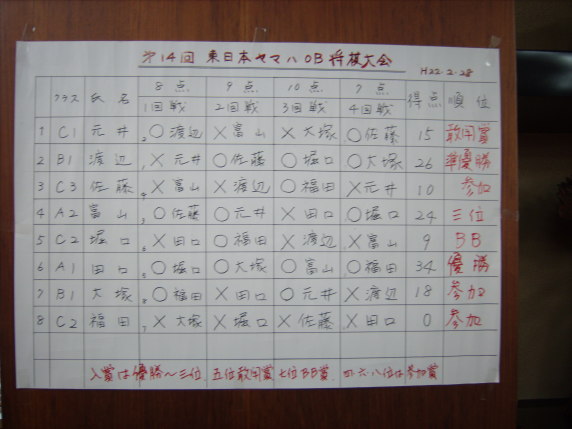 第14回 東日本ヤマハOB将棋大会
H22-2-28
クラス 氏名 8点 1回戦 9点 2回戦 10点 3回戦 7点 4回戦 得点 順位
1 C1 元井 2 〇渡辺 ×富山 ×大塚 〇佐藤 15 敢闘賞
2 B1 渡辺 1 ×元井 〇佐藤 〇堀口 〇大塚 26 準優勝
3 C3 佐藤 4 ×富山 ×渡辺 〇福田 ×元井 10 参加
4 A2 富山 3 〇佐藤 〇元井 ×田口 〇堀口 24 三位
5 C2 堀口 6 ×田口 〇福田 ×渡辺 ×富山 9 BB
6 A1 田口 5 〇堀口 〇大塚 〇富山 〇福田 34 優勝
7 B1 大塚 8 〇福田 ×田口 〇元井 ×渡辺 18 参加
8 C2 福田 7 ×大塚 ×堀口 ×佐藤 ×田口 0 参加
入賞は優勝〜三位 五位敢闘賞 七位BB賞 四、六、八位は参加賞